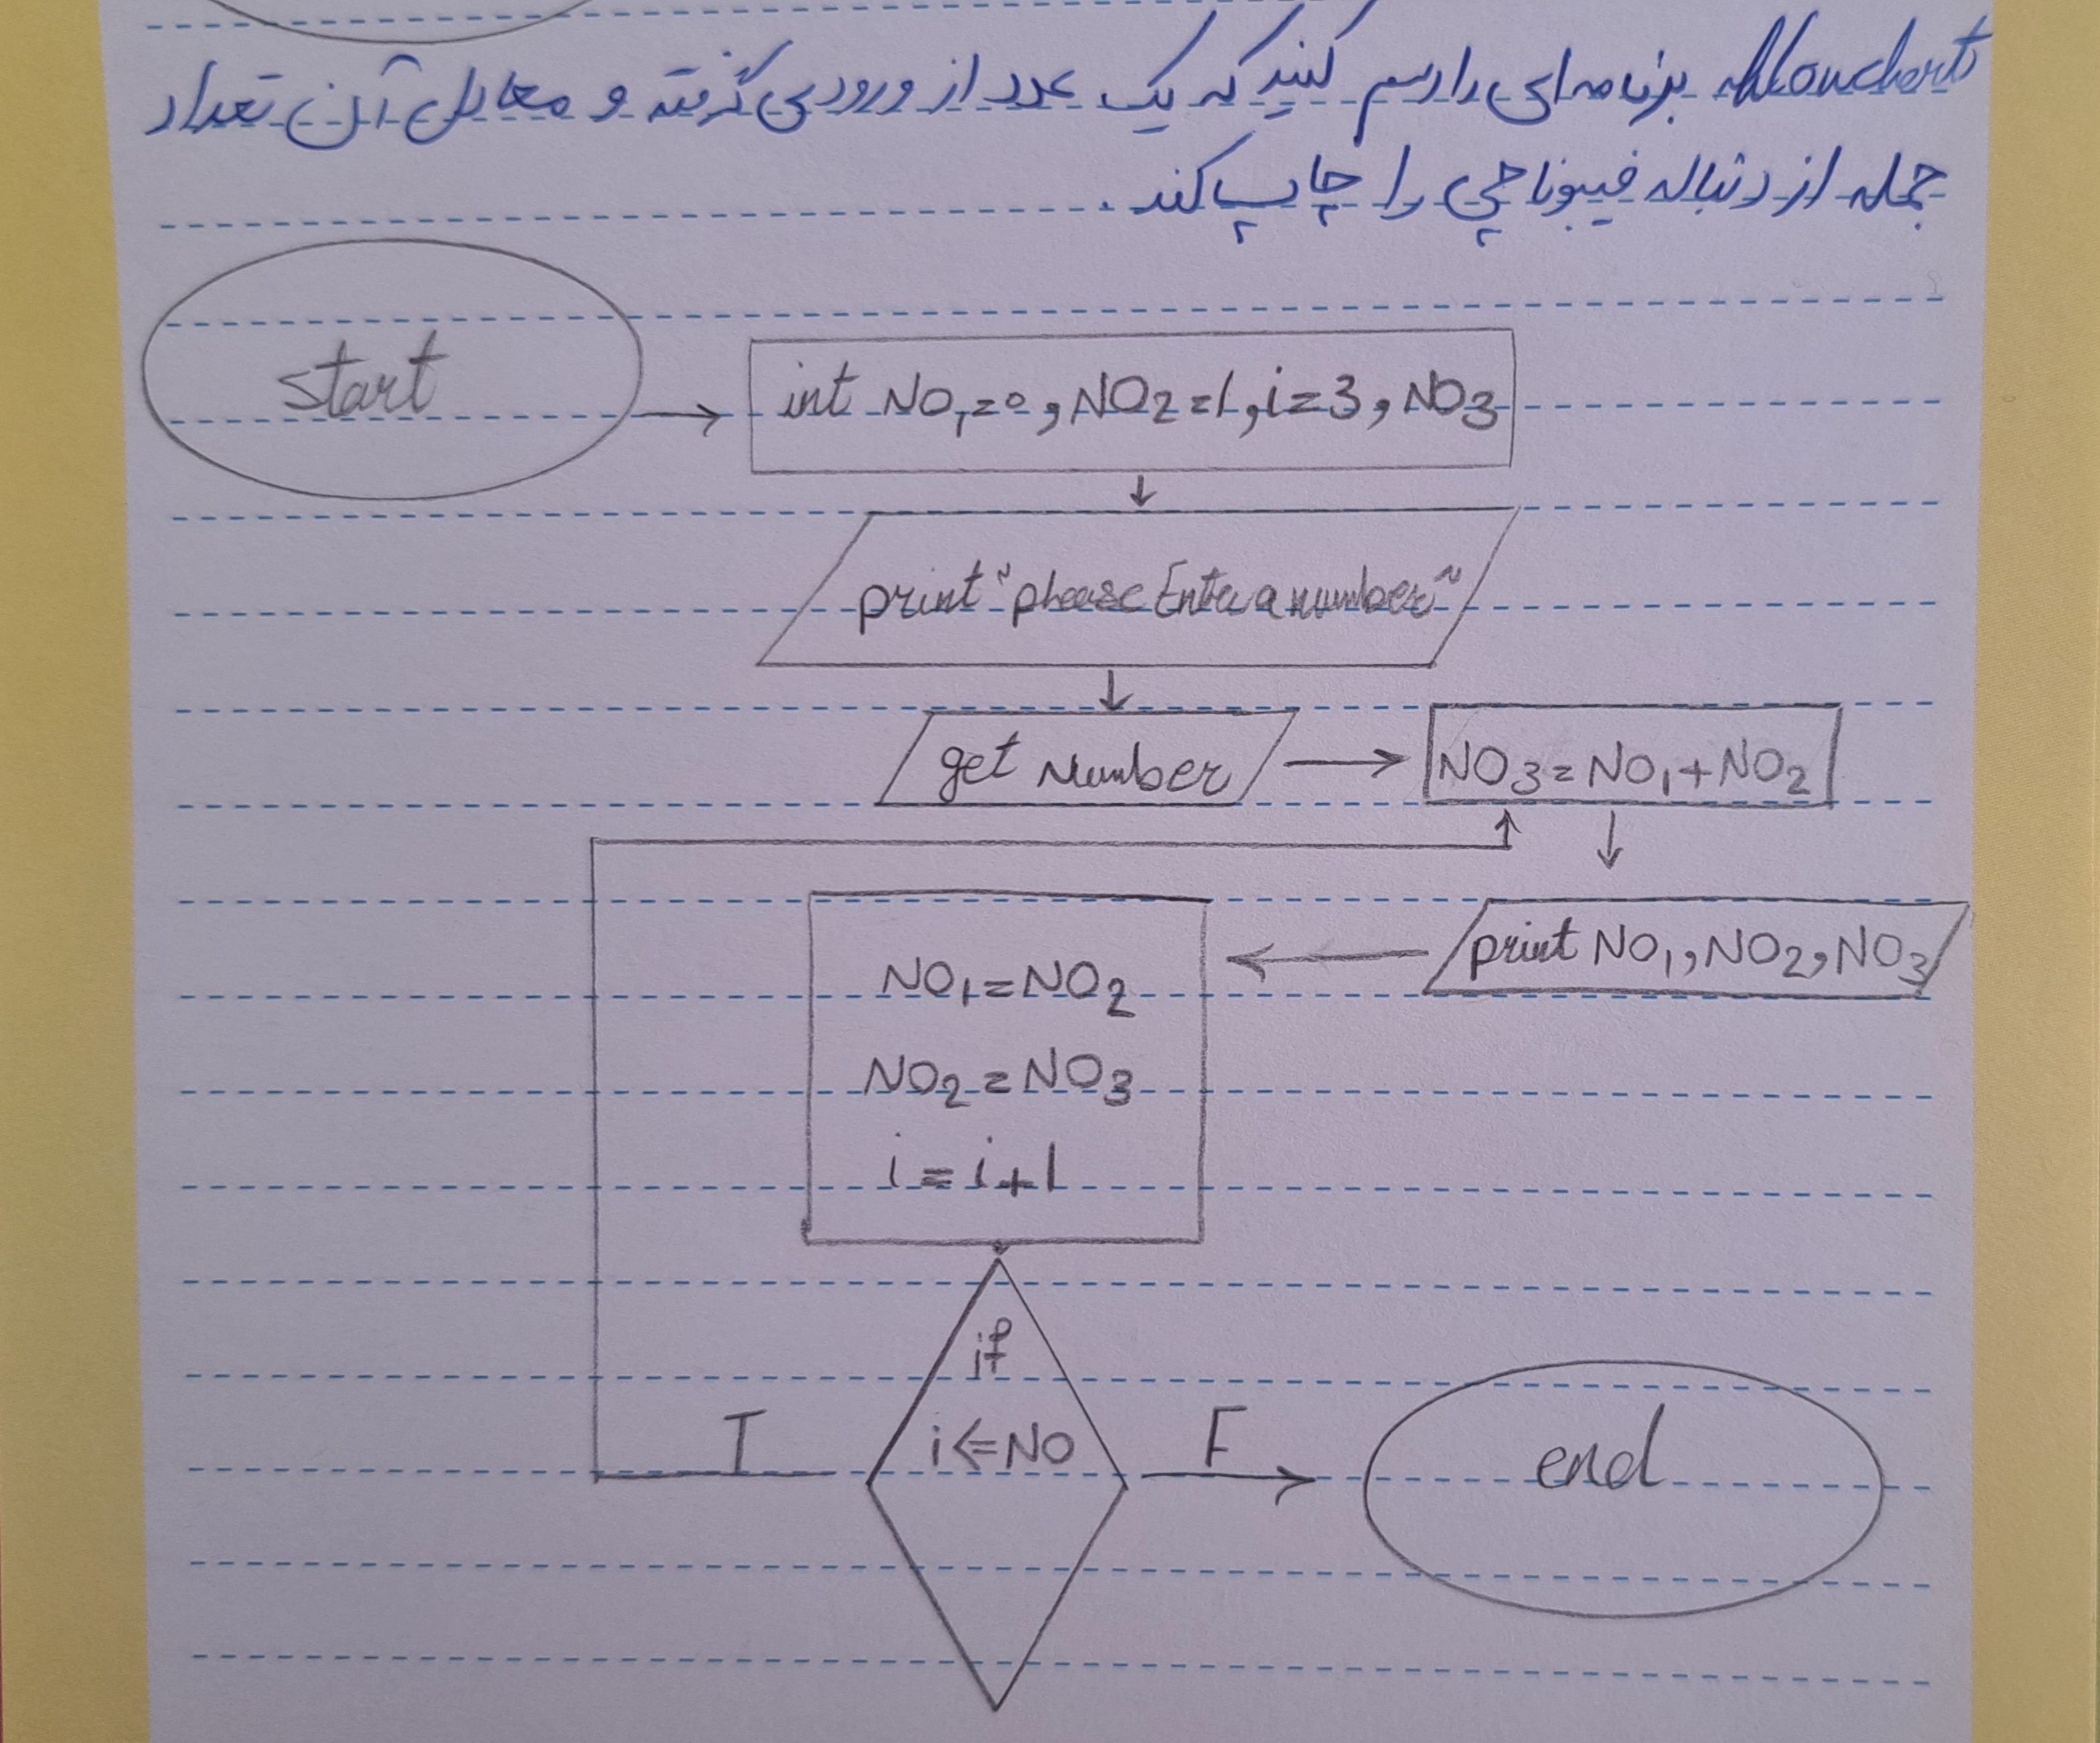 flowchart برنامه ای را رسم کنید که یک عدد از ورودی گرفته و معادل آن تعداد
جمله از دنباله فیبوناچی را چاپ کند.
start
int NO1=0, NO2=1, i=3, NO3
print "please Enter a number"
get Number
NO3=NO1+NO2
print NO1, NO2, NO3
NO1=NO2
NO2=NO3
i=i+1
if
i<=NO
T
F
end